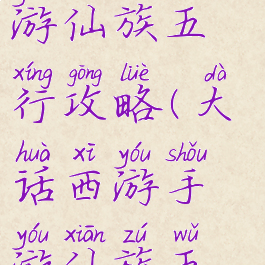 游仙族五
xíng gōng lüè dà
行攻略(大
huà xī yóu shǒu
话西游手
yóu xiān zú wǔ
游仙族五